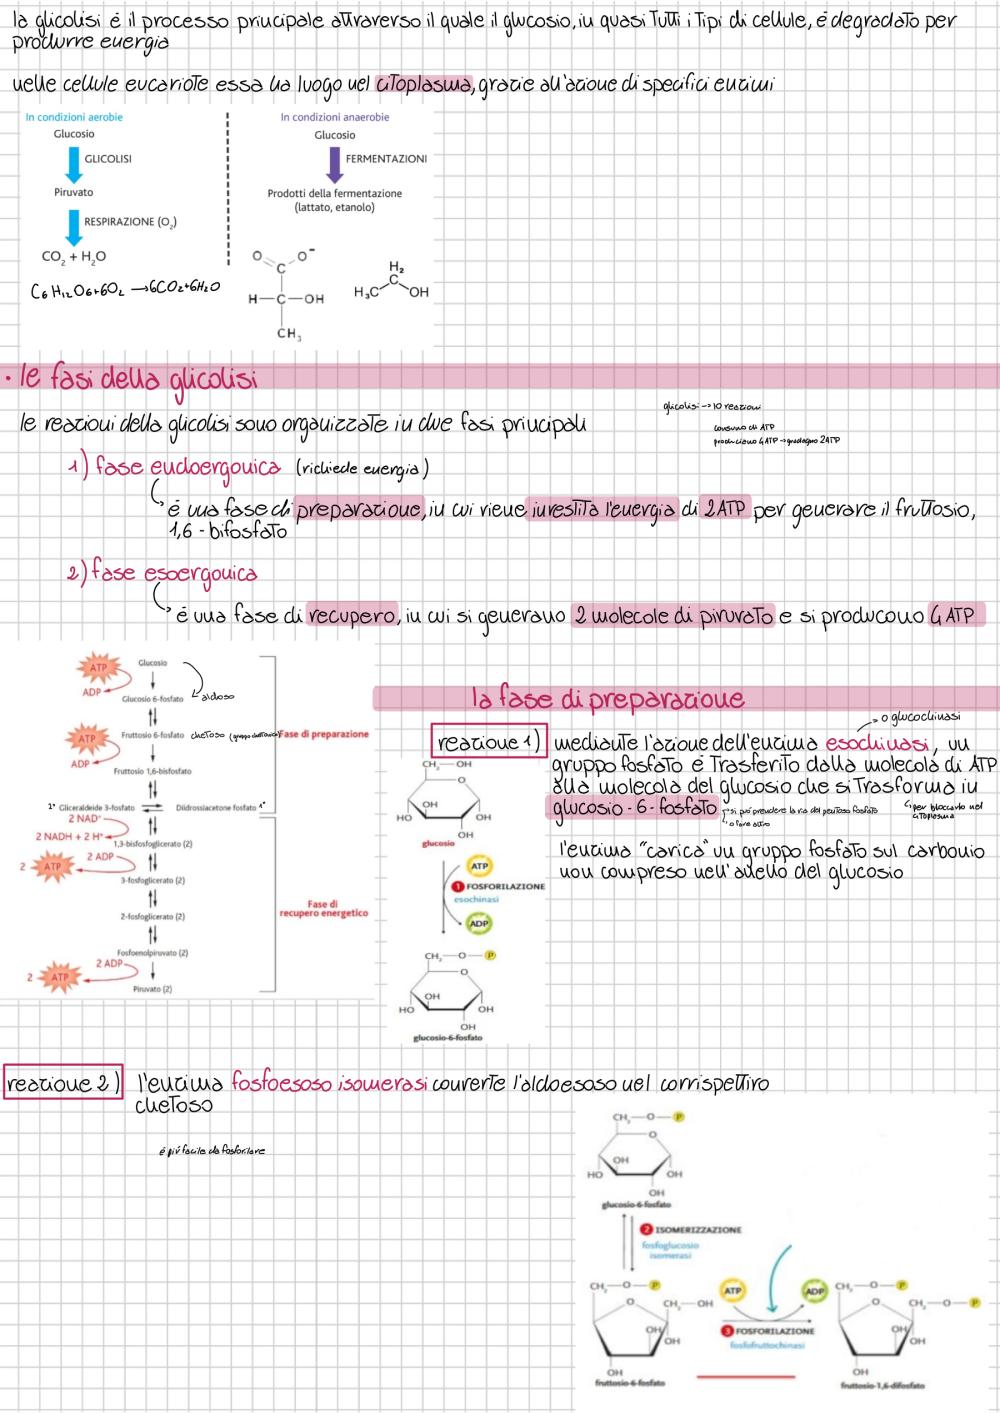 la glicolisi è il processo principale attraverso il quale il glucosio, in quasi tutti i tipi di cellule, è degradato per
produrre energia
nelle cellule eucariote essa ha luogo nel citoplasma, grazie all'azione di specifici enzimi
In condizioni aerobie
In condizioni anaerobie
Glucosio
Glucosio
GLICOLISI
FERMENTAZIONI
Piruvato
Prodotti della fermentazione
(lattato, etanolo)
RESPIRAZIONE (O₂)
CO₂ + H₂O
C₆H₁₂O₆+6O₂ →6CO₂+6H₂O
O O⁻
C
H—C—OH
CH₃
H₂
C
H₃C OH
• le fasi della glicolisi
le reazioni della glicolisi sono organizzate in due fasi principali
glicolisi → 10 reazioni
consumo di ATP
producono 4ATP → guadagno 2ATP
1) fase endoergonica (richiede energia)
è una fase di preparazione, in cui viene investita l'energia di 2ATP per generare il fruttosio,
1,6 - bifosfato
2) fase esoergonica
è una fase di recupero, in cui si generano 2 molecole di piruvato e si producono 4 ATP
ATP
Glucosio
ADP
Glucosio 6-fosfato
aldoso
ATP
Fruttosio 6-fosfato
chetoso (gruppo chetonico)
Fase di preparazione
ADP
Fruttosio 1,6-bisfosfato
2° Gliceraldeide 3-fosfato
Diidrossiacetone fosfato 1°
2 NAD⁺
2 NADH + 2 H⁺
1,3-bisfosfoglicerato (2)
2 ADP
2 ATP
3-fosfoglicerato (2)
Fase di
recupero energetico
2-fosfoglicerato (2)
Fosfoenolpiruvato (2)
2 ADP
2 ATP
Piruvato (2)
la fase di preparazione
o glucochinasi
reazione 1)
mediante l'azione dell'enzima esochinasi, un
gruppo fosfato è trasferito dalla molecola di ATP
alla molecola del glucosio che si trasforma in
glucosio - 6 - fosfato
si può prendere la via del pentoso fosfato
o fare altro
per bloccarlo nel
citoplasma
l'enzima "carica" un gruppo fosfato sul carbonio
non compreso nell'anello del glucosio
CH₂—OH
O
OH
HO OH
OH
glucosio
ATP
1 FOSFORILAZIONE
esochinasi
ADP
CH₂—O—P
O
OH
HO OH
OH
glucosio-6-fosfato
reazione 2)
l'enzima fosfoesoso isomerasi converte l'aldoesoso nel corrispettivo
chetoso
è più facile da fosforilare
CH₂—O—P
O
OH
HO OH
OH
glucosio-6-fosfato
2 ISOMERIZZAZIONE
fosfoglucosio
isomerasi
CH₂—O—P
O
CH₂—OH
OH
OH
OH
fruttosio-6-fosfato
ATP
ADP
3 FOSFORILAZIONE
fosfofruttochinasi
CH₂—O—P
O
CH₂—O—P
OH
OH
OH
fruttosio-1,6-difosfato